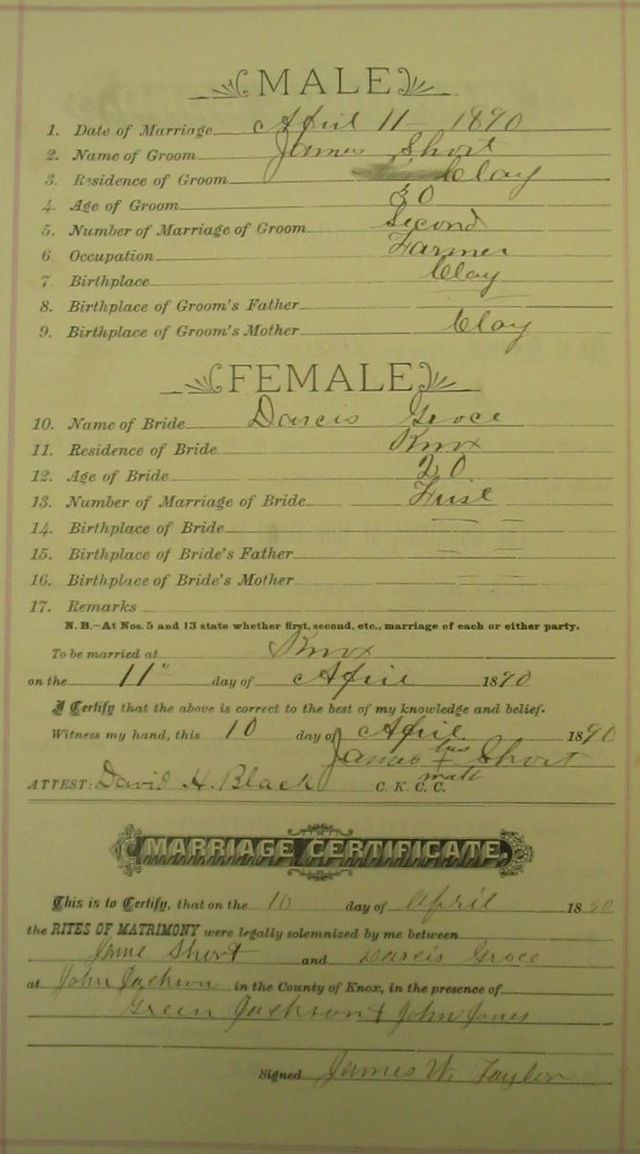 MALE
1. Date of Marriage April 11 - 1890
2. Name of Groom James Short
3. Residence of Groom Clay
4. Age of Groom 30
5. Number of Marriage of Groom Second
6 Occupation Farmer
7. Birthplace Clay
8. Birthplace of Groom's Father
9. Birthplace of Groom's Mother Clay
FEMALE
10. Name of Bride Darcis Groce
11. Residence of Bride Knox
12. Age of Bride 20
13. Number of Marriage of Bride First
14. Birthplace of Bride
15. Birthplace of Bride's Father
16. Birthplace of Bride's Mother
17. Remarks
N. B.—At Nos. 5 and 13 state whether first, second, etc., marriage of each or either party.
To be married at Knox
on the 11" day of April 1890
I Certify that the above is correct to the best of my knowledge and belief.
Witness my hand, this 10 day of April 1890
James his + mark Short
ATTEST: David H. Black C. K. C. C.
MARRIAGE CERTIFICATE.
This is to Certify, that on the 10 day of April 1890
the RITES OF MATRIMONY were legally solemnized by me between
Short and Darcis Groce
at John Jackson in the County of Knox, in the presence of
Green Jackson & John Jones
Signed James W. Taylor